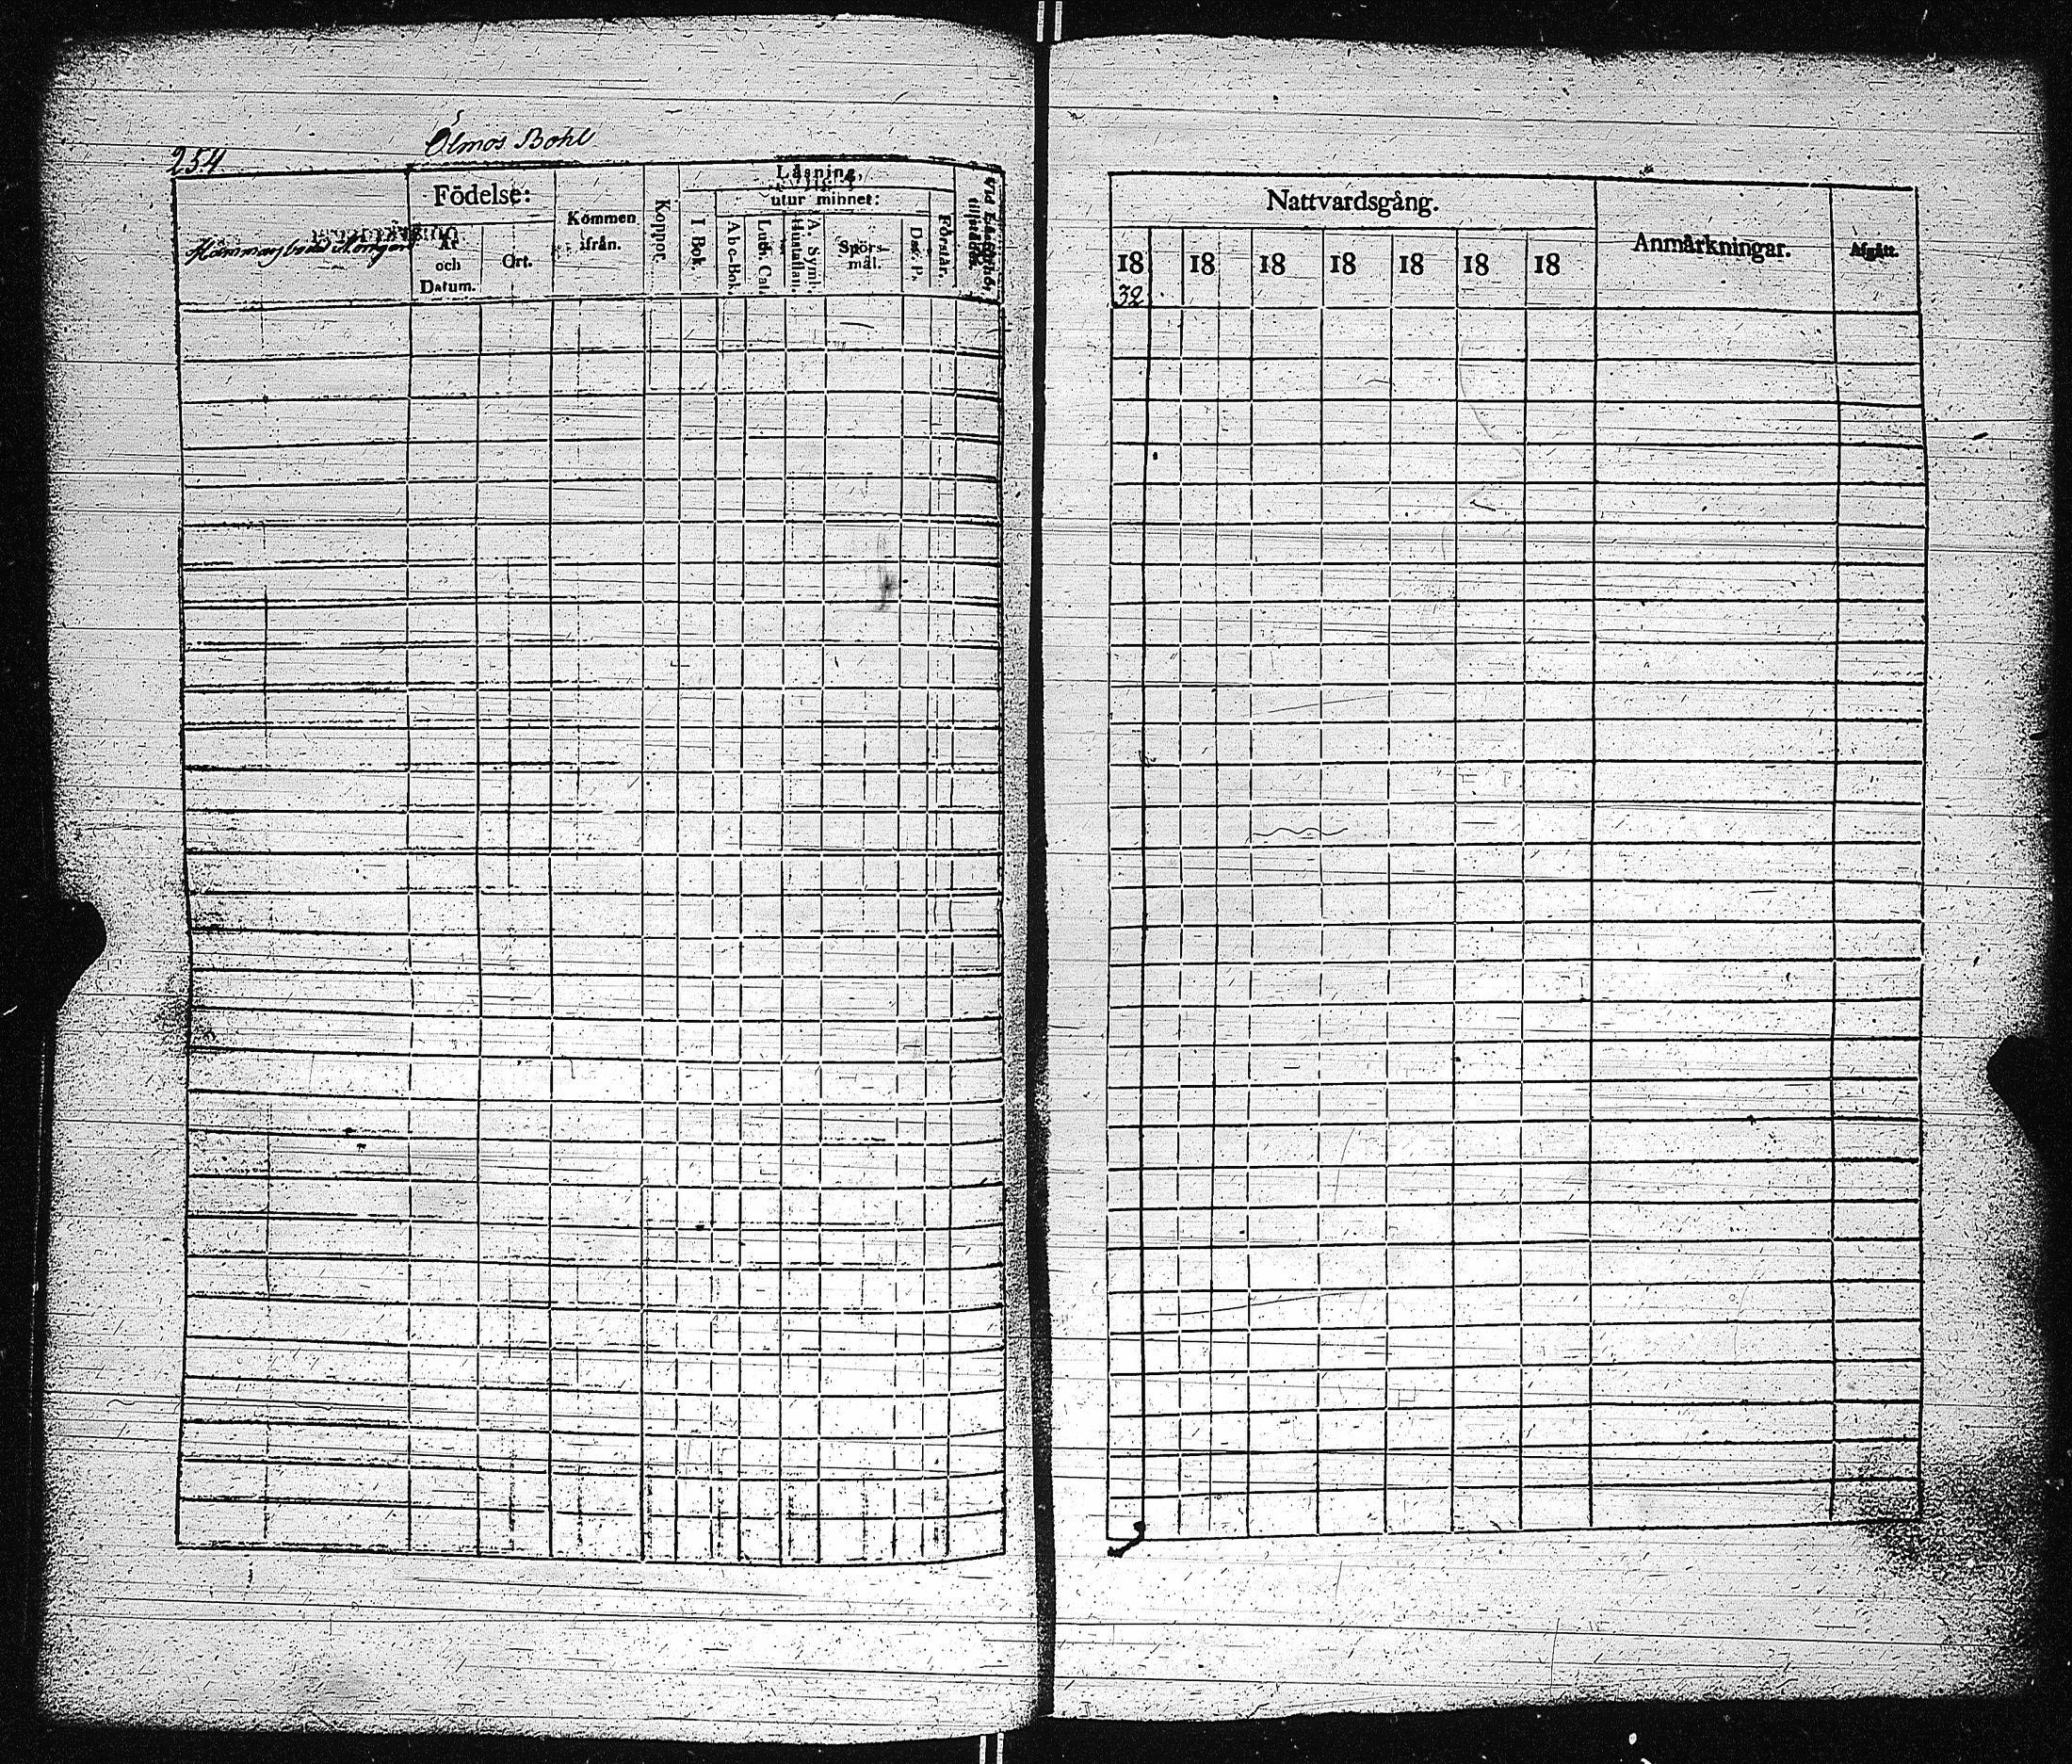 254
Ölmos Bohl
Födelse:
År och Datum.
Ort.
Kommen ifrån.
Koppor.
Läsning,
I Bok.
utur minnet:
Abc-Bok.
Luth. Cat.
A. Symb. Hustaflan.
Spörs-mål.
Dav. P.
Förstår.
Nattvardsgång.
18 18 18 18 18 18 18
32
Anmärkningar.
Afgått.